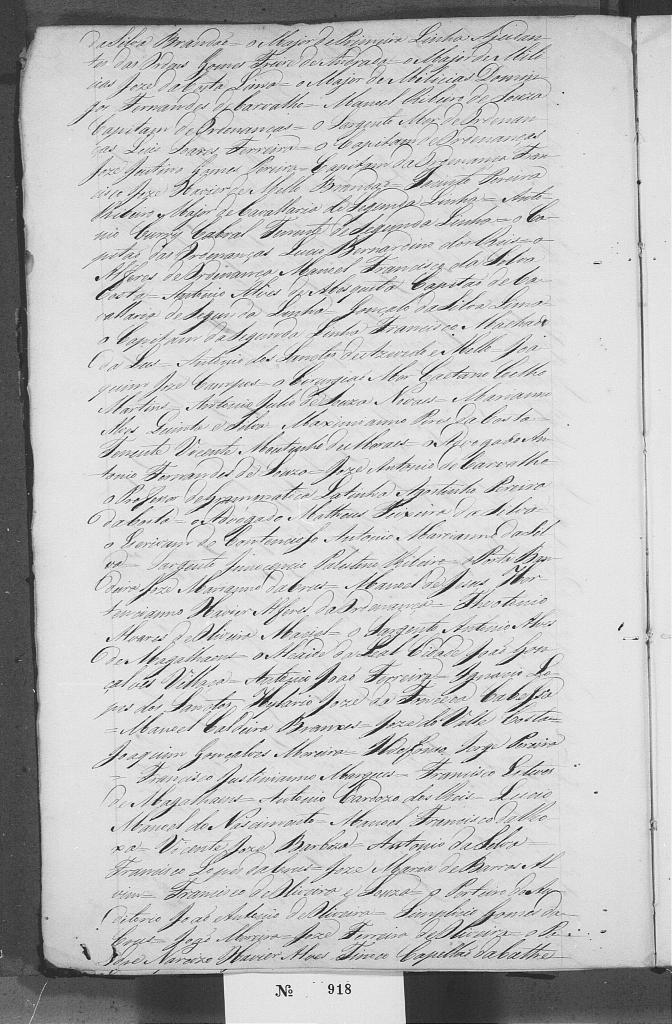 da Silva Brandão = o Major de Primeira Linha Ajudan-
te das Praças Gomes Freire de Andrada = o Major de Mili-
cias Joze da Costa Lima = o Major de Milicias Domin-
gos Fernandes de Carvalho = Manoel Ribeiro de Souza
Capitam de Ordenanças = o Sargento Mor de Ordenan-
ças Luis Soares Ferreira = o Capitam de Ordenanças
Joze Justino Gomes Pereira = Capitam da Ordenança Fran-
cisco Joze Xavier de Mello Brandão = Jacinto Pereira
Ribeiro Major de Cavallaria de Segunda Linha = Anto-
nio Cabral Tenente de Segunda Linha = o Ca-
pitão das Ordenanças Lucio Bernardino dos Reis = o
Alferes de Ordenança Manoel Francisco da Silva
Costa = Antonio Alves de Mesquita Capitão de Ca-
vallaria de Segunda Linha = Gonçalo da Silva Lima
o Capitam da Segunda Linha Francisco Machado
da Luz = Antonio dos Santos de Azevedo e Mello = Joa-
quim Joze Campos = o Cirurgião Mor Caetano Coelho
Martins = Antonio Julio de Souza Novaes = Marianno
Alves = Maximianno Pires da Costa =
Tenente Vicente Moutinho de Moraes = o Advogado An-
tonio Fernandes de Souza = Joze Antonio de Carvalho
o Professor de Grammatica Latina Agostinho Pereira
da Costa = o Advogado Matheus Teixeira da Silva =
o Escrivam do Contencioso Antonio Marrianno da Sil-
va = Sargento Innocencio Ribeiro = o Porta Ban-
deira Joze Marianno da Cruz = Manoel de Jesus Hor-
tencianno Xavier Alferes da Ordenança = Theotonio
Alvares de Oliveira Maciel = o Sargento Antonio Alves
de Magalhaens = o Alcaide da Leal Cidade João Gon-
çalves Villaça = Antonio Joaõ Ferreira = Ignacio Lo-
pes dos Santos = Hylario Joze da Fonseca Cabessa
= Manoel Caldeira = Joze do Valle Costa =
Joaquim Gonçalves Moreira = Ildefonso Jorge Pereira
= Francisco Justinianno Marques = Francisco
de Magalhaens = Antonio Cardozo dos Reis = Lucio
Manoel do Nascimento = Manoel Francisco da Ro-
za = Vicente Joze Barboza = Antonio da Silva =
Francisco Lopes da Cruz = Joze Maria de Barros Al-
vim = Francisco de Oliveira e Souza = o Porteiro do Au-
ditorio João Antonio de Oliveira = Simplicio Gomes da
Cruz = João Moreira = Joze Ferreira de Oliveira = o
Narcizo Xavier Alves Capellão da Cathe-
Nº 918